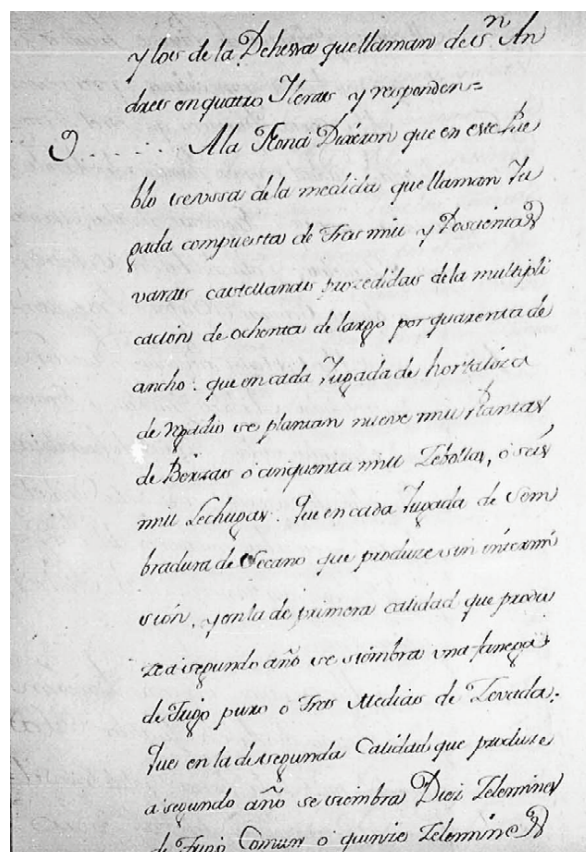 y los de la Dehesa que llaman de Sn An
dres en quatro Ileras y responden=
9....... A la Nona Dixeron que en este Pue
blo se vssa de la medida que llaman Yu
gada compuesta de Tres mill y Doscientas
varas castellanas procedidas de la multipli
cación de ochenta de largo por quarenta de
ancho: que en cada Yugada de hortaliza
de Regadio se plantan nueve mill Plantas
de Berzas ò cinquenta mill Zebollas, ò seis
mill Lechugas. Que en cada Yugada de Sem
bradura de Secano que produze sin intermi
sión, y en la de primera calidad que produ
ze a segundo año se siembra vna fanega
de Trigo puro o Tres Medias de Zevada:
Que en la de segunda Calidad que produze
a segundo año se siembra Diez Zelemines
de Trigo Comun o quinze Zelemines